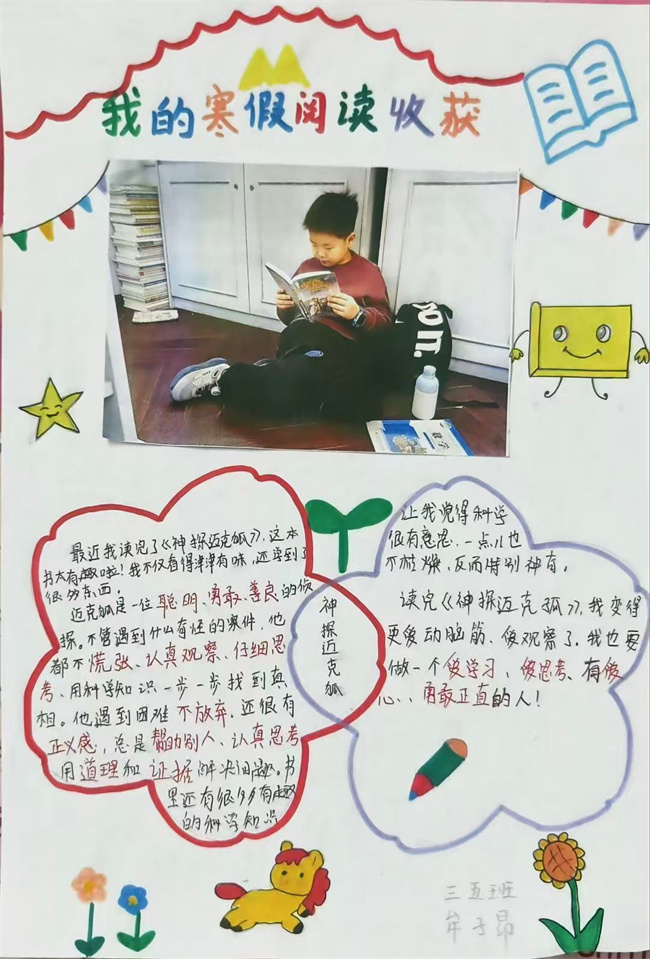 我的寒假阅读收获
最近我读完了《神探迈克狐》,这本
书太有趣啦!我不仅看得津津有味,还学到了
很多东西。
迈克狐是一位聪明、勇敢、善良的侦
探。不管遇到什么奇怪的案件,他
都不慌张、认真观察、仔细思
考、用科学知识一步一步找到真
相。他遇到困难不放弃,还很有
正义感,总是帮助别人、认真思考
用道理和证据解决问题。书
里还有很多有趣
的科学知识
神探迈克狐
让我觉得科学
很有意思、一点儿也
不枯燥、反而特别神奇。
读完《神探迈克狐》,我变得
更爱动脑筋、爱观察了。我也要
做一个爱学习、爱思考、有爱
心、勇敢正直的人!
三五班
牟子昂
数学